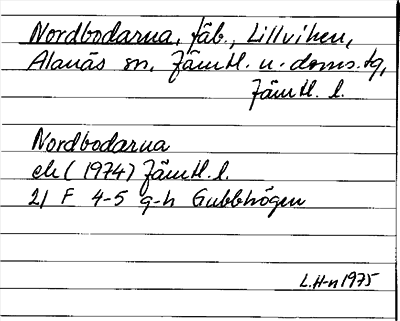 Nordbodarna, fäb., Lillviken,
Alanäs sn, Jämtl. n. doms.tg,
Jämtl. l.
Nordbodarna
ek (1974) Jämtl. l.
21 F 4-5 g-h Gubbhögen
L.H-n 1975